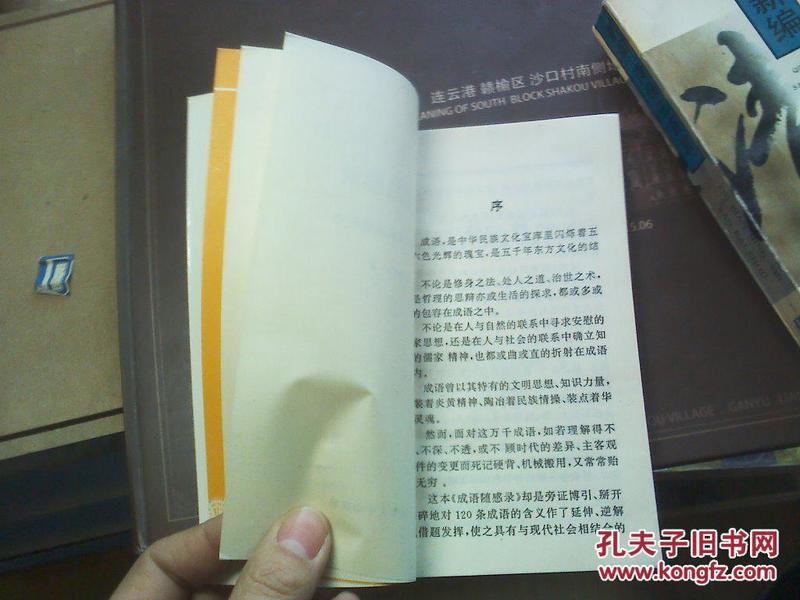 连云港 赣榆区 沙口村南侧
ANING OF SOUTH BLOCK SHAKOU VILLAGE
新
编
5.06
序
成语，是中华民族文化宝库里闪烁着五
色光辉的瑰宝，是五千年东方文化的结
不论是修身之法、处人之道、治世之术，
是哲理的思辩亦或生活的探求，都或多或
的包容在成语之中。
不论是在人与自然的联系中寻求安慰的
家思想，还是在人与社会的联系中确立知
的儒家 精神，也都或曲或直的折射在成语
内。
成语曾以其特有的文明思想、知识力量，
装着炎黄精神、陶冶着民族情操、装点着华
灵魂。
然而，面对这万千成语，如若理解得不
、不深、不透，或不 顾时代的差异、主客观
件的变更而死记硬背、机械搬用，又常常贻
无穷。
这本《成语随感录》却是旁证博引、掰开
碎地对 120 条成语的含义作了延伸、逆解
借题发挥，使之具有与现代社会相结合的
OU VILLAGE GANYU LIAN
孔夫子旧书网
www.kongfz.com